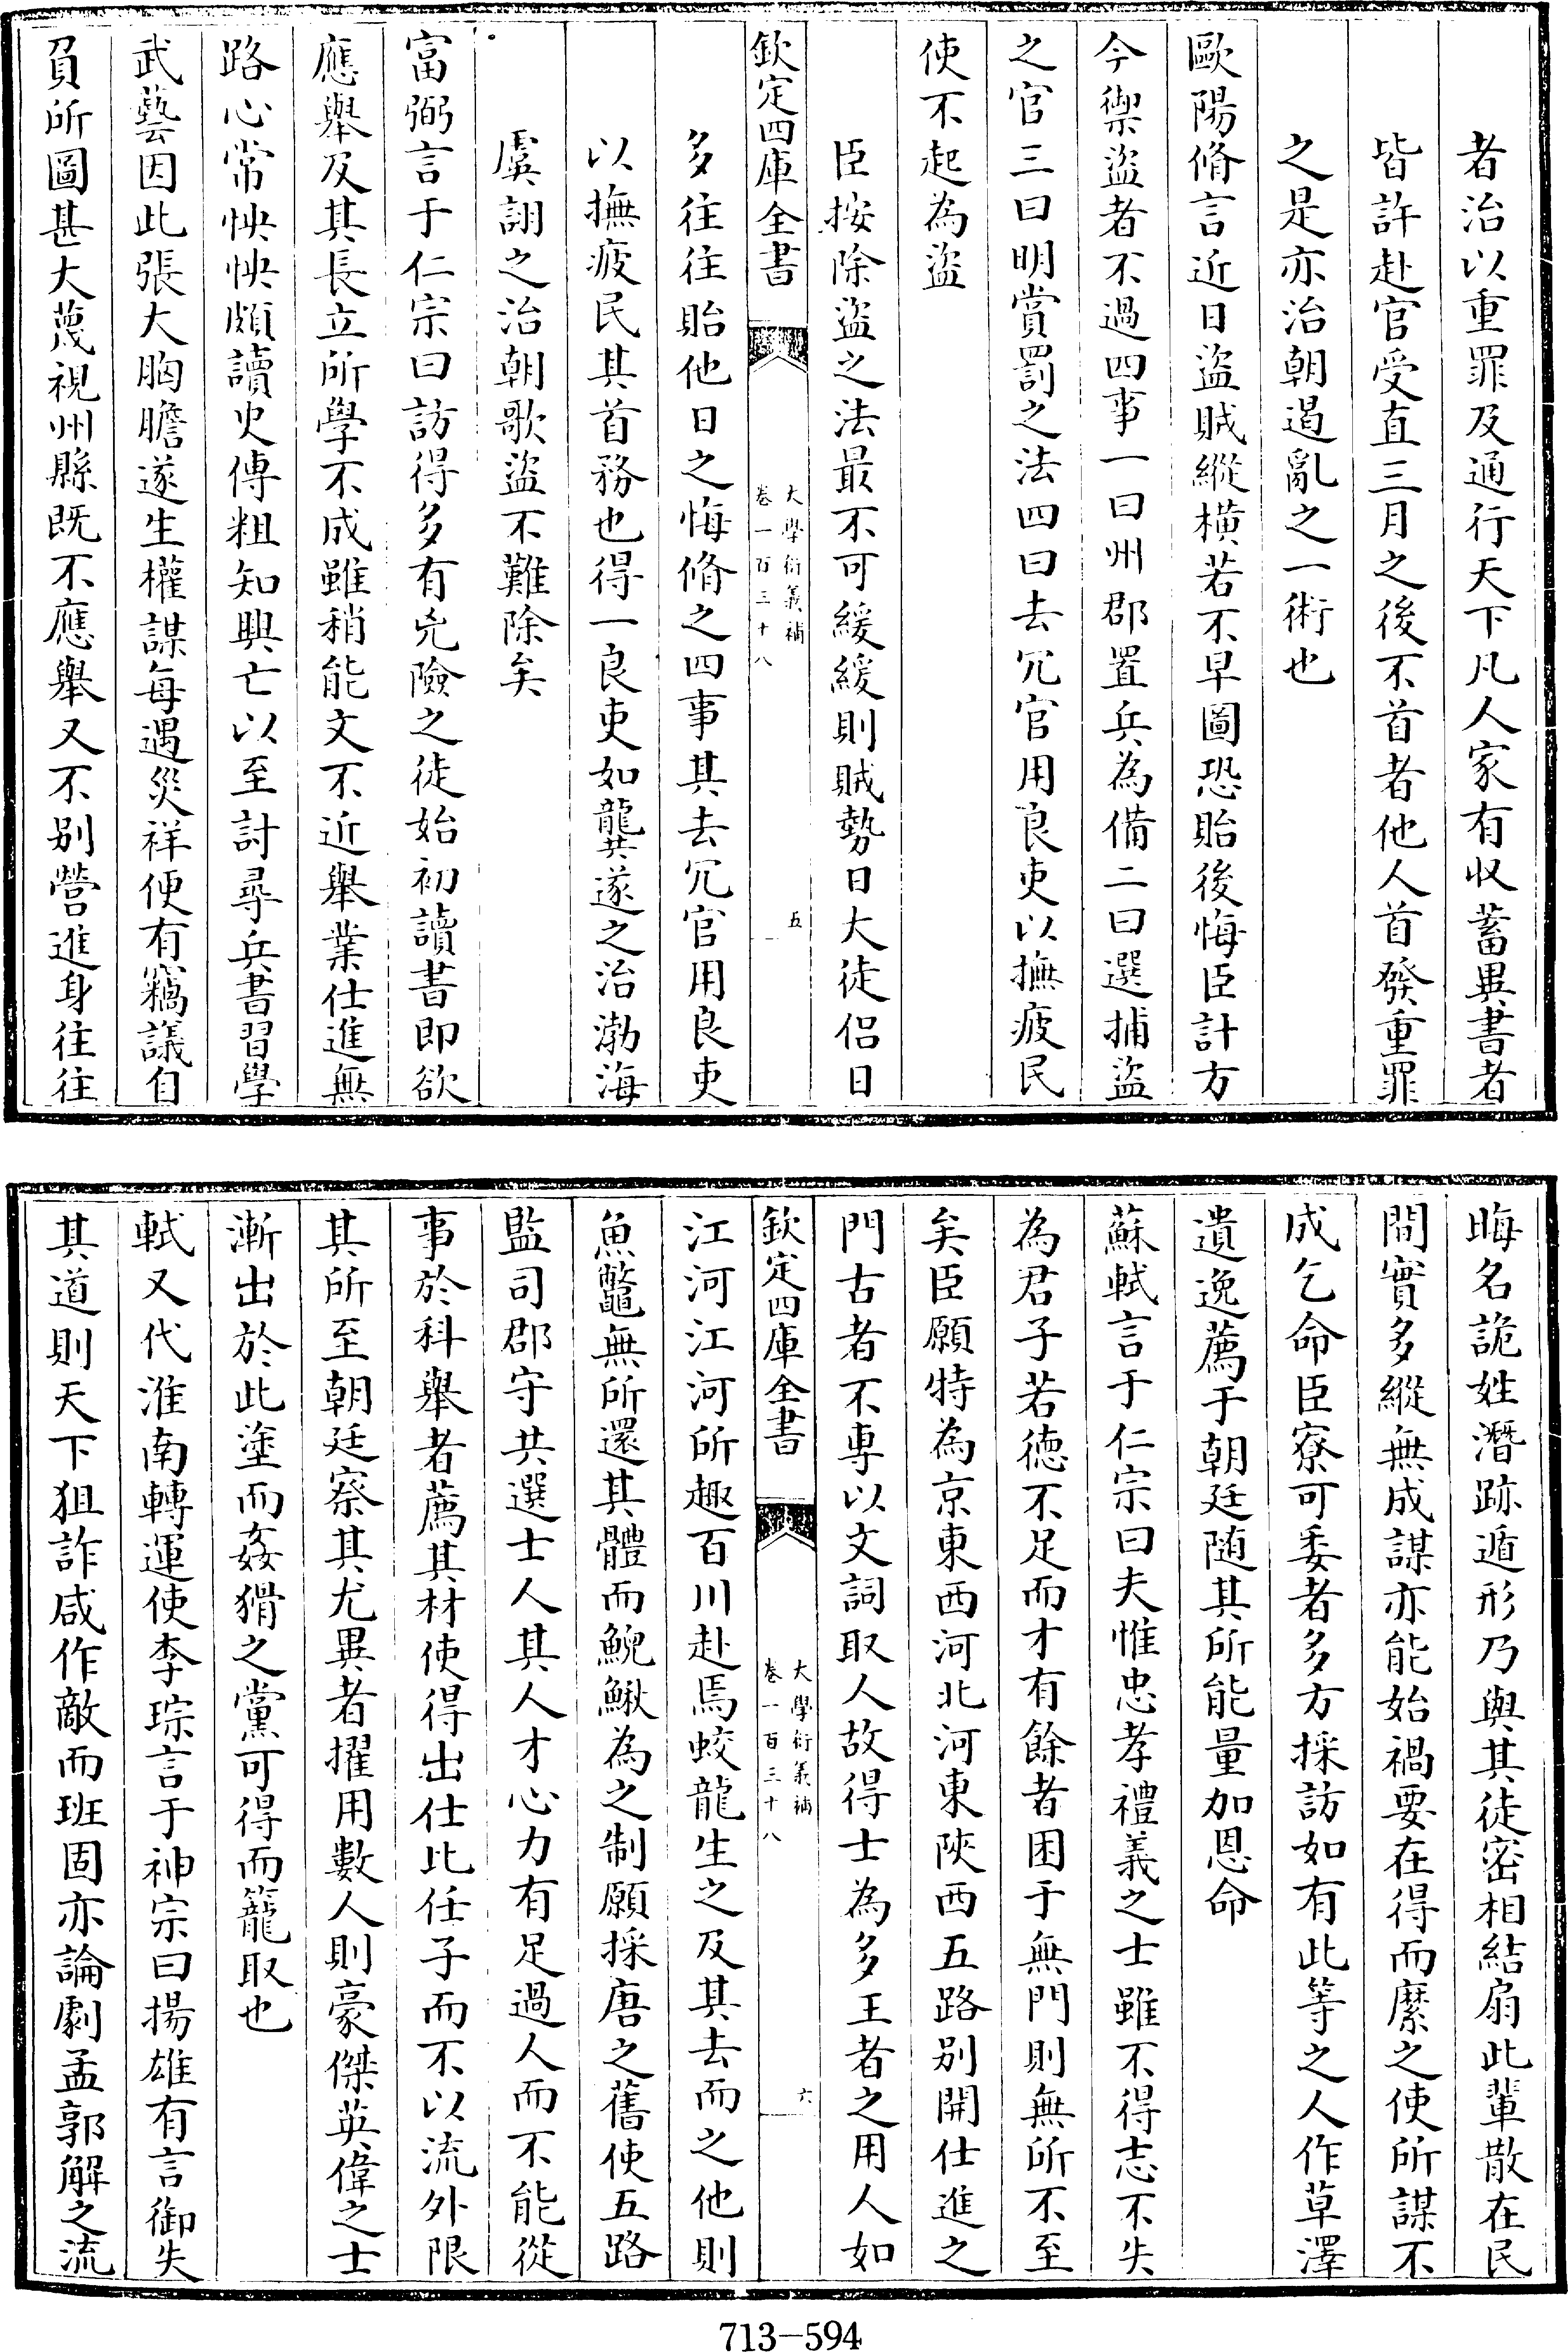 者治以重罪及通行天下凡人家有収蓄異書者
皆許赴官受直三月之後不首者他人首發重罪
之是亦治朝遏亂之一術也
歐陽脩言近日盜賊縱橫若不早圖恐貽後悔臣計方
今禦盜者不過四事一曰州郡置兵為備二曰選捕盜
之官三曰明賞罰之法四曰去冗官用良吏以撫疲民
使不起為盜
臣按除盜之法最不可緩緩則賊勢日大徒侣日
欽定四庫全書
大學衍義補
卷一百三十八
五
多往往貽他日之悔脩之四事其去冗官用良吏
以撫疲民其首務也得一良吏如龔遂之治渤海
虞詡之治朝歌盜不難除矣
富弼言于仁宗曰訪得多有兇險之徒始初讀書即欲
應舉及其長立所學不成雖稍能文不近舉業仕進無
路心常怏怏頗讀史傳粗知興亡以至討尋兵書習學
武藝因此張大胸膽遂生權謀每遇災祥便有竊議自
負所圖甚大蔑視州縣既不應舉又不别營進身往往
晦名詭姓潛跡遁形乃與其徒密相結扇此輩散在民
間實多縱無成謀亦能始禍要在得而縻之使所謀不
成乞命臣寮可委者多方採訪如有此等之人作草澤
遺逸薦于朝廷随其所能量加恩命
蘇軾言于仁宗曰夫惟忠孝禮義之士雖不得志不失
為君子若徳不足而才有餘者困于無門則無所不至
矣臣願特為京東西河北河東陜西五路别開仕進之
門古者不專以文詞取人故得士為多王者之用人如
欽定四庫全書
大學衍義補
卷一百三十八
六
江河江河所趣百川赴焉蛟龍生之及其去而之他則
魚鼈無所還其體而鯢鰍為之制願採唐之舊使五路
監司郡守共選士人其人才心力有足過人而不能從
事於科舉者薦其材使得出仕比任子而不以流外限
其所至朝廷察其尤異者擢用數人則豪傑英偉之士
漸出於此塗而姦猾之黨可得而籠取也
軾又代淮南轉運使李琮言于神宗曰揚雄有言御失
其道則天下狙詐咸作敵而班固亦論劇孟郭解之流
713-594